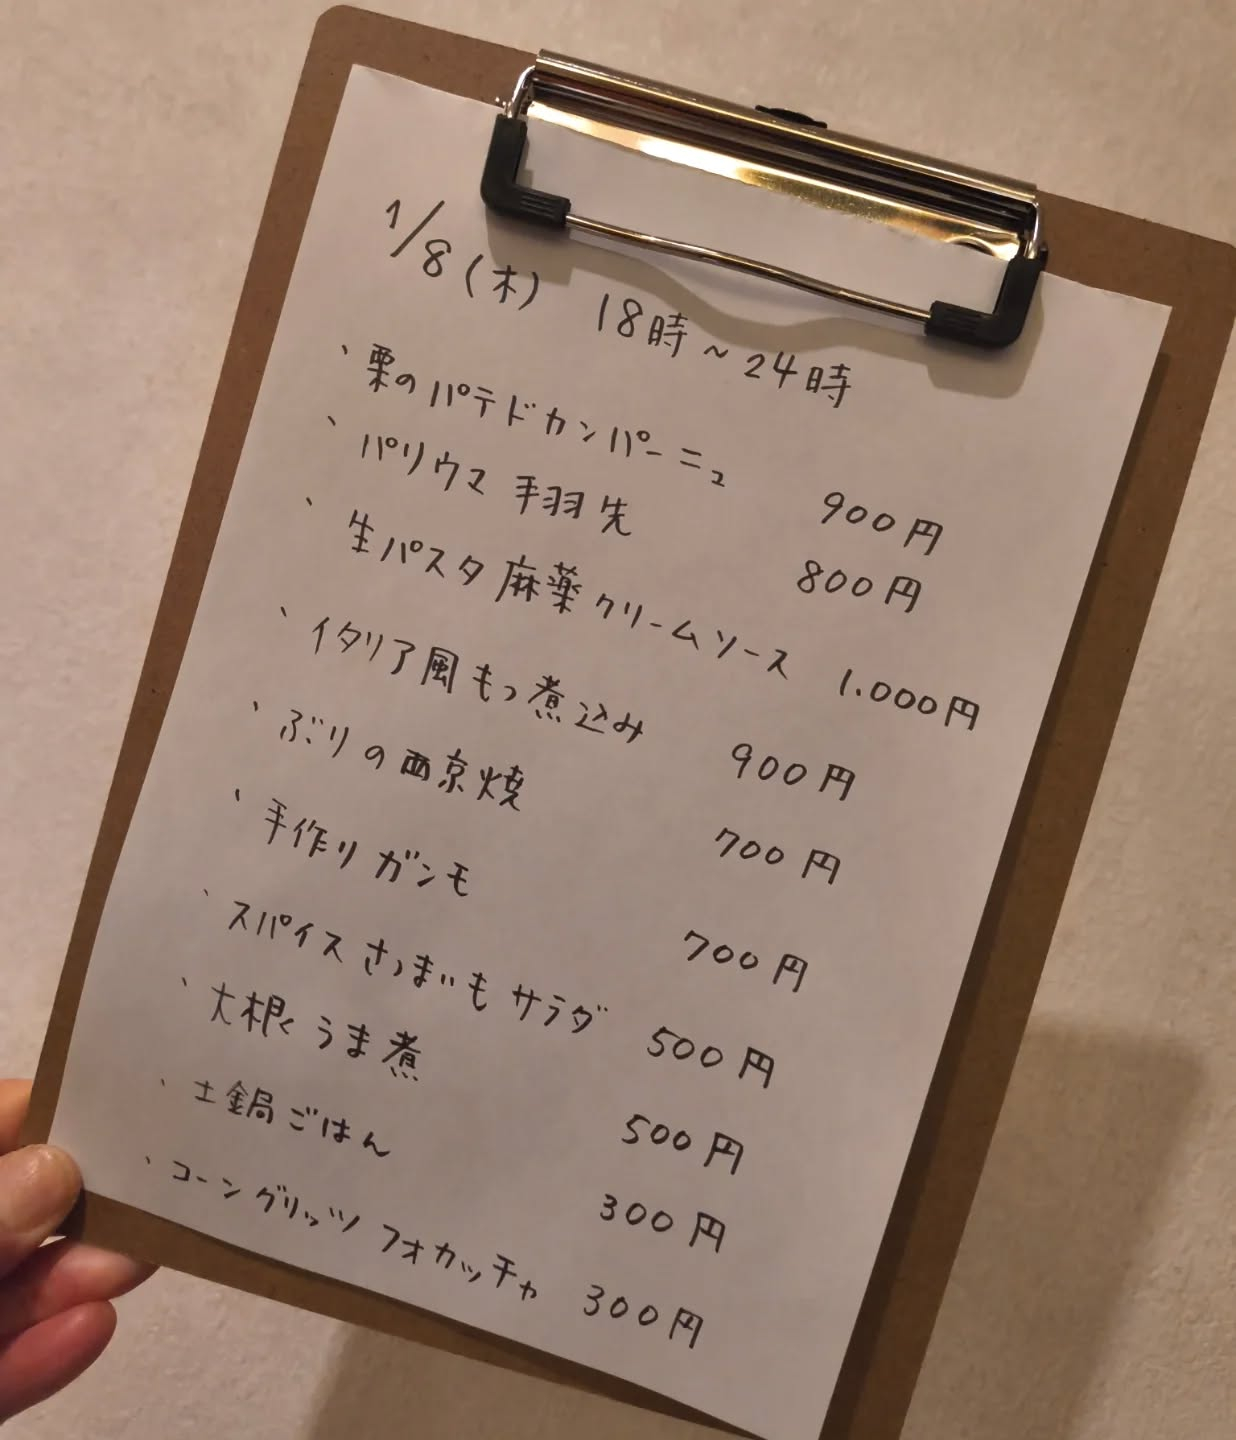 1/8(木) 18時~24時
、栗のパテドカンパーニュ 900円
、パリウマ手羽先 800円
、生パスタ麻薬クリームソース 1.000円
、イタリア風もつ煮込み 900円
、ぶりの西京焼 700円
、手作りガンモ 700円
、スパイスさつまいもサラダ 500円
、大根うま煮 500円
、土鍋ごはん 300円
、コーングリッツフォカッチャ 300円